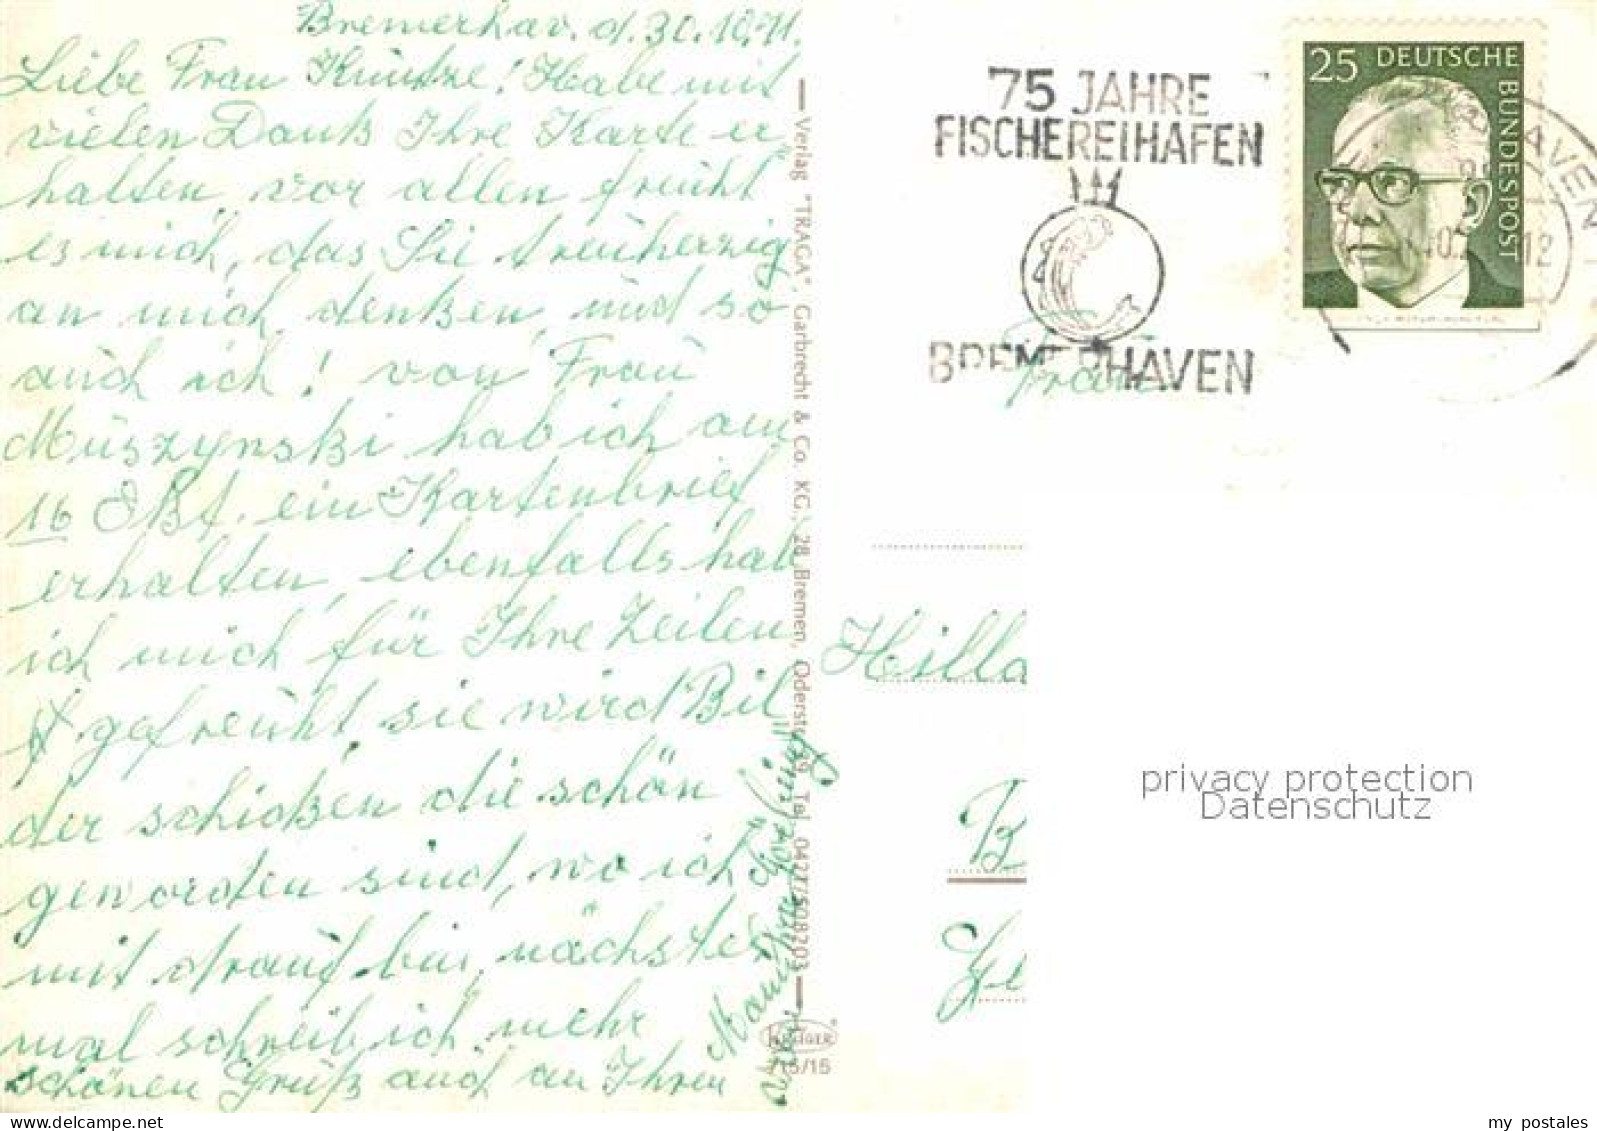 Bremerhav. d. 30.10.71.
Liebe Frau Küntze! Habe mit
vielen Dank Ihre Karte er
halten, vor allen freüht
es mich, das Sie treüherzig
an mich denken, ünd so
aüch ich! von Fraü
Müszynski hab ich am
16 Okt. ein Kartenbrief
erhalten, ebenfalls hab
ich mich für Ihre Zeilen
gefreüht, sie wird Bil
der schicken die schön
geworden sind, wo ich
mit draüf bin, nächstes
mal schreib ich mehr
schönen Grüß aüch an Ihren
Mann Ihre
Verlag "TRAGA", Garbrecht & Co. KG, 28 Bremen, Oderstr. 39 Tel. 0421/508203
KRÜGER
715/15
75 JAHRE
FISCHEREIHAFEN
BREMERHAVEN
25 DEUTSCHE
BUNDESPOST
HAVEN 1
12
Fraü
Hilla
B
Ge
privacy protection
Datenschutz
my postales